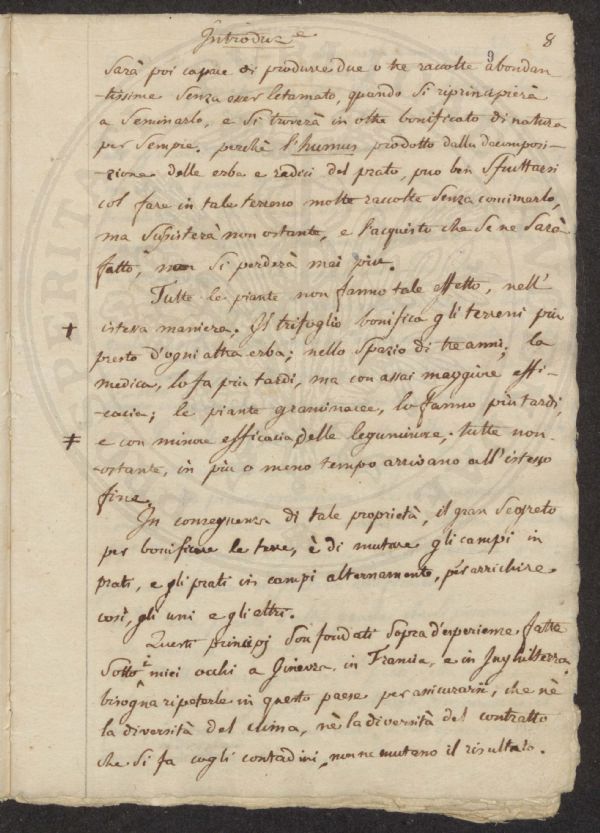 Introduz.e
8
9
sarà poi capace di produrre due o tre raccolte abondan
-tissime senza esser letamato, quando si riprincipierà
a seminarlo, e si troverà in oltre bonificato di natura
per sempre. perchè l'humus prodotto dalla decomposi-
-zione delle erbe e radici del prato, puo ben sfruttarsi
col fare in tale terreno molte raccolte senza concimarlo,
ma susisterà non ostante, e l'acquisto che se ne sarà
fatto, non si perderà mai piu.
Tutte le piante non fanno tale effetto, nell'
+ istessa maniera. Il trifoglio bonifica gli terreni piu
presto d'ogni altra erba; nello spazio di tre anni; la
medica, lo fa piu tardi, ma con assai maggiore effi-
-cacia; le piante graminacee, lo fanno piu tardi,
≠ e con minore efficacia delle leguminose; tutte non-
-ostante, in piu o meno tempo arrivano all'istesso
fine.
In conseguenza di tale proprietà, il gran segreto
per bonificare le terre, è di mutare gli campi in
prati, e gli prati in campi alternamente, per arrichire
così, gli uni e gli altri.
Questi principj son fondati sopra d'esperienze fatte
sotto i miei occhi a Ginevra, in Francia, e in Inghilterra.
bisogna ripeterle in questo paese per asicurarsi, che nè
la diversità del clima, nè la diversità del contratto
che si fa cogli contadini, non ne mutano il risultato.